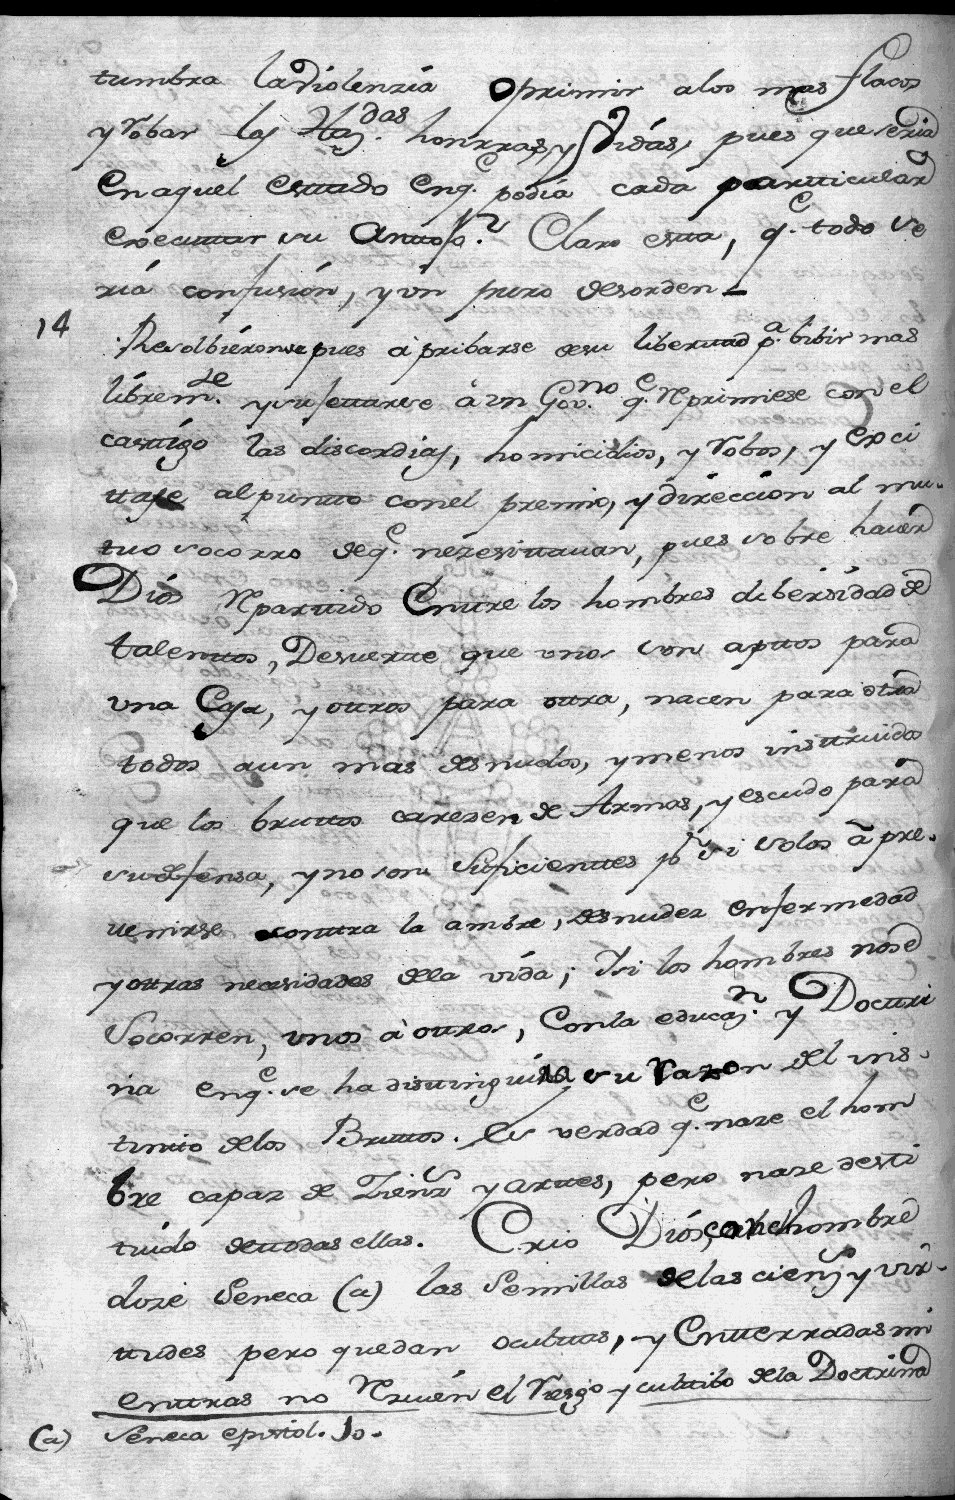 tumbra la violenzia oprimir alos mas flacos
y robar las Haz.das honrras, y vidas, pues que seria
En aquel esttado Enq.e podia cada partticular
executtar su Antto
Claro estta, q.e todo se
ria confusión, y vn puro desorden
14
Resolbieronse pues à pribarse desu liberttad p.a bibir mas
librem.te y sugettarse à vn Gov.no q.e Reprimiese con el
casttigo las discordias, homicidios, y robos, y exci
ttase al puntto conel premio, y dirección al mu-
tuo socorro deq.e nezesittauan, pues sobre haver
Dios Reparttido Enttre los hombres dibersidad de
talenttos, Desuertte que unos son apttos para
una Cosa, y ottros para ottra, nacen para otra
todos aun mas desnudos, y menos insttruidos
que los bruttos carezen de Armas, y escudo para
su defensa, y no son Suficienttes p.r si solos à pre-
uenirse conttra la ambre, desnudez enfermedad
y ottras necesidades della vida; Y si los hombres nose
Socorren, unos à ottros, Conla educaz.n y Docttri
na enq.e se ha disttinguido su razon del ins-
tintto delos Bruttos. Es verdad q.e naze el hom
bre capaz de Zienz.s y arttes, pero naze desti
tuido dettodas ellas. Crio Dios, enel hombre
dize Seneca (a) las Semillas delas cienz.s y vir-
ttudes pero quedan oculttas, y Entterradas mi
enttras no Reciuen el Riego y culttibo dela Docttrina
(a) Seneca episttol. 10.